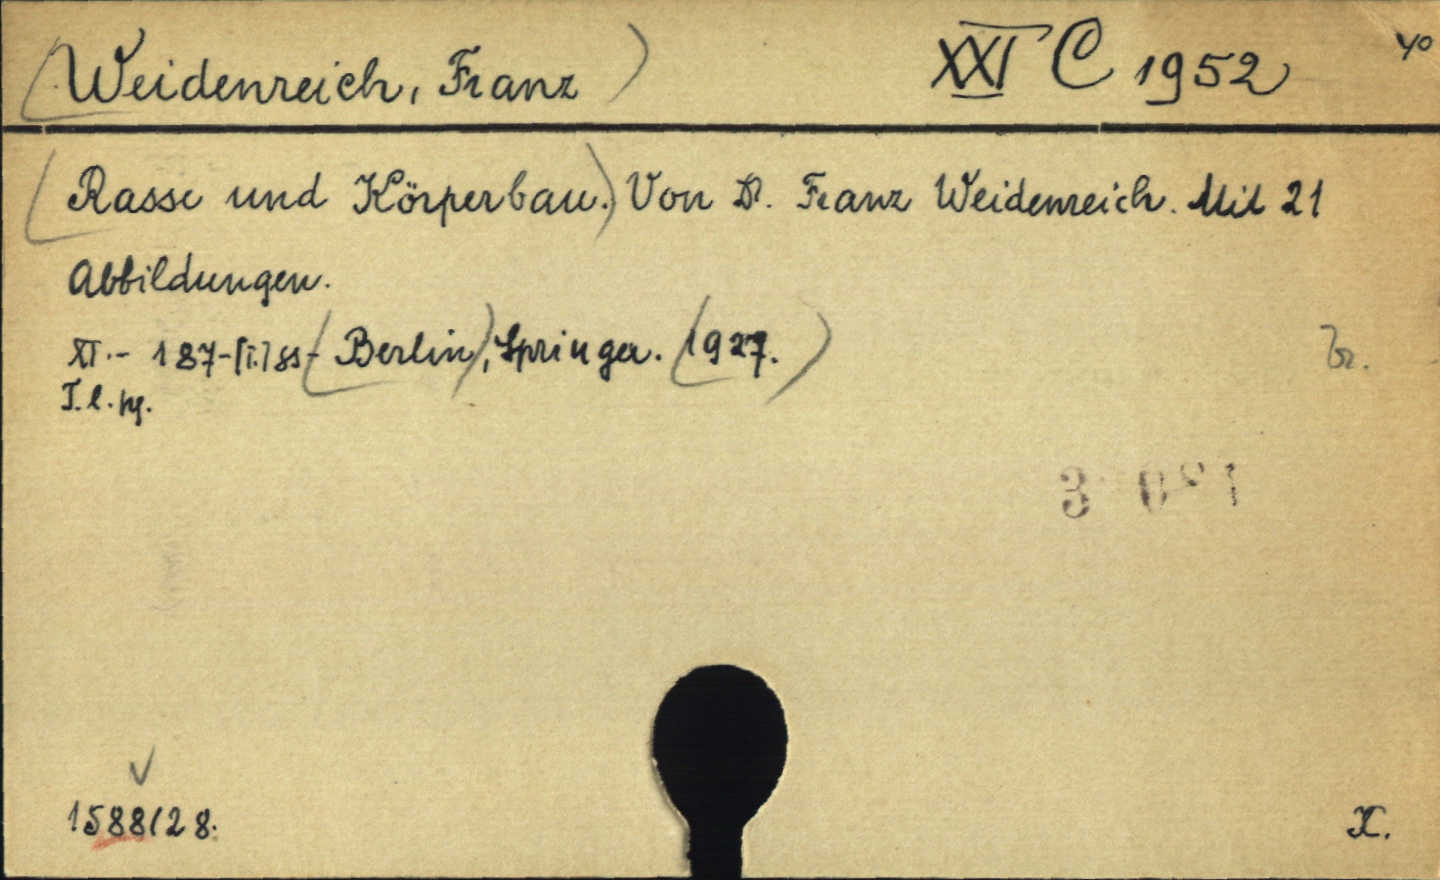 (Weidenreich, Franz) XXI C 1952 40
(Rasse und Körperbau.) Von Dr. Franz Weidenreich. Mit 21
Abbildungen.
XI.- 187-[1.] ss- (Berlin), Springer. (1927.) br.
T. l. kg.
1588/28. X.